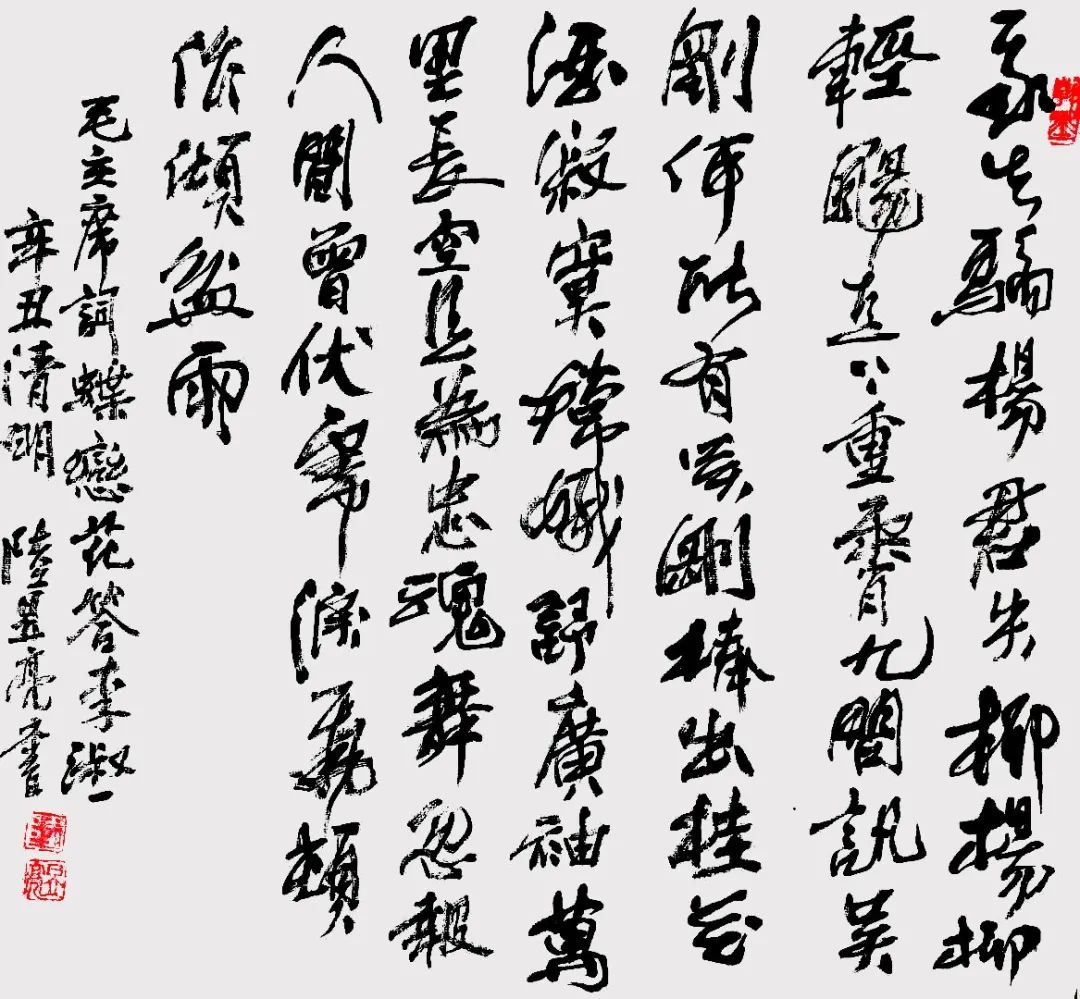 我失驕楊君失柳楊柳
輕颺直上重霄九問訊吳
剛何所有吳剛捧出桂花
酒寂寞嫦娥舒廣袖萬
里長空且為忠魂舞忽報
人間曾伏虎淚飛頓
作傾盆雨
毛主席詞蝶戀花答李淑一
辛丑清明 陸昱亮書